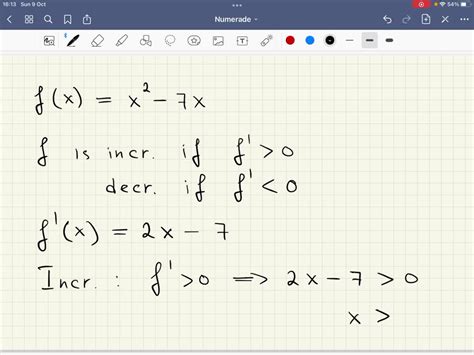 16:13 Sun 9 Oct
54%
Numerade
f(x) = x² - 7x
f is incr. if f' > 0
decr. if f' < 0
f'(x) = 2x - 7
Incr. : f' > 0 ⟹ 2x - 7 > 0
x >